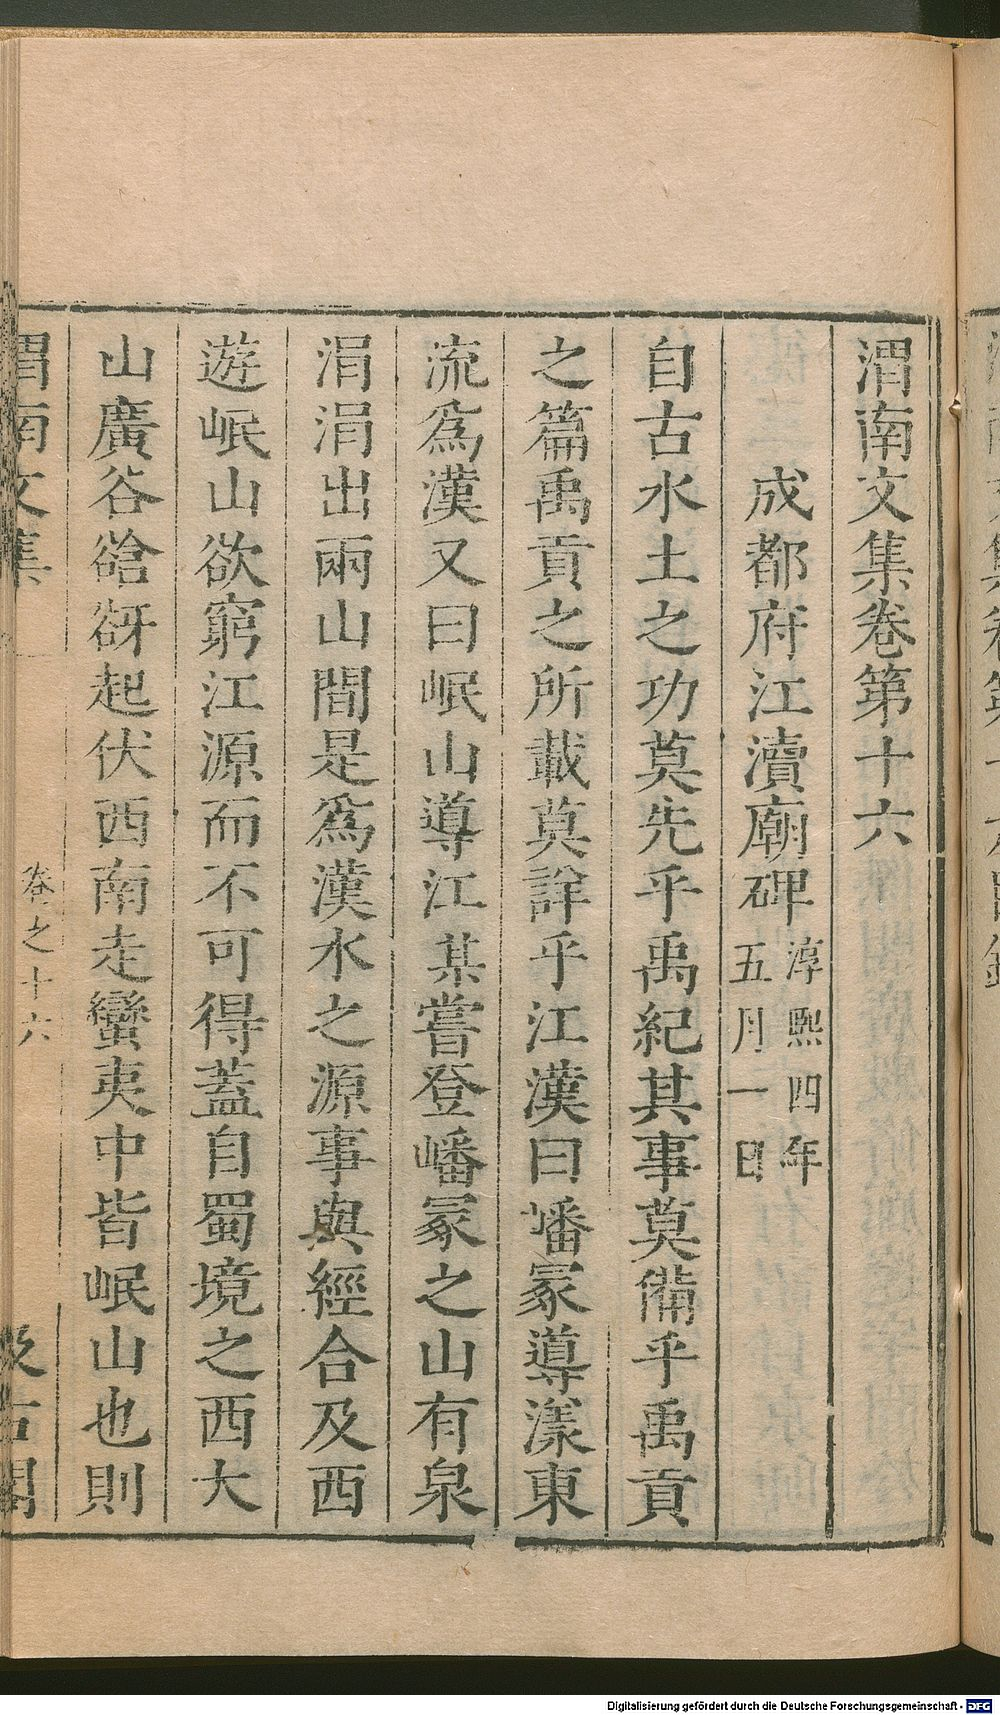 渭南文集卷第十六
成都府江瀆廟碑
淳熙四年
五月一日
自古水土之功莫先乎禹紀其事莫備乎禹貢
之篇禹貢之所載莫詳乎江漢曰嶓冢導漾東
流爲漢又曰岷山導江某嘗登嶓冢之山有泉
涓涓出兩山間是爲漢水之源事與經合及西
遊岷山欲窮江源而不可得蓋自蜀境之西大
山廣谷谽谺起伏西南走蠻夷中皆岷山也則
渭南文集
卷之十六
汲古閣
Digitalisierung gefördert durch die Deutsche Forschungsgemeinschaft - DFG